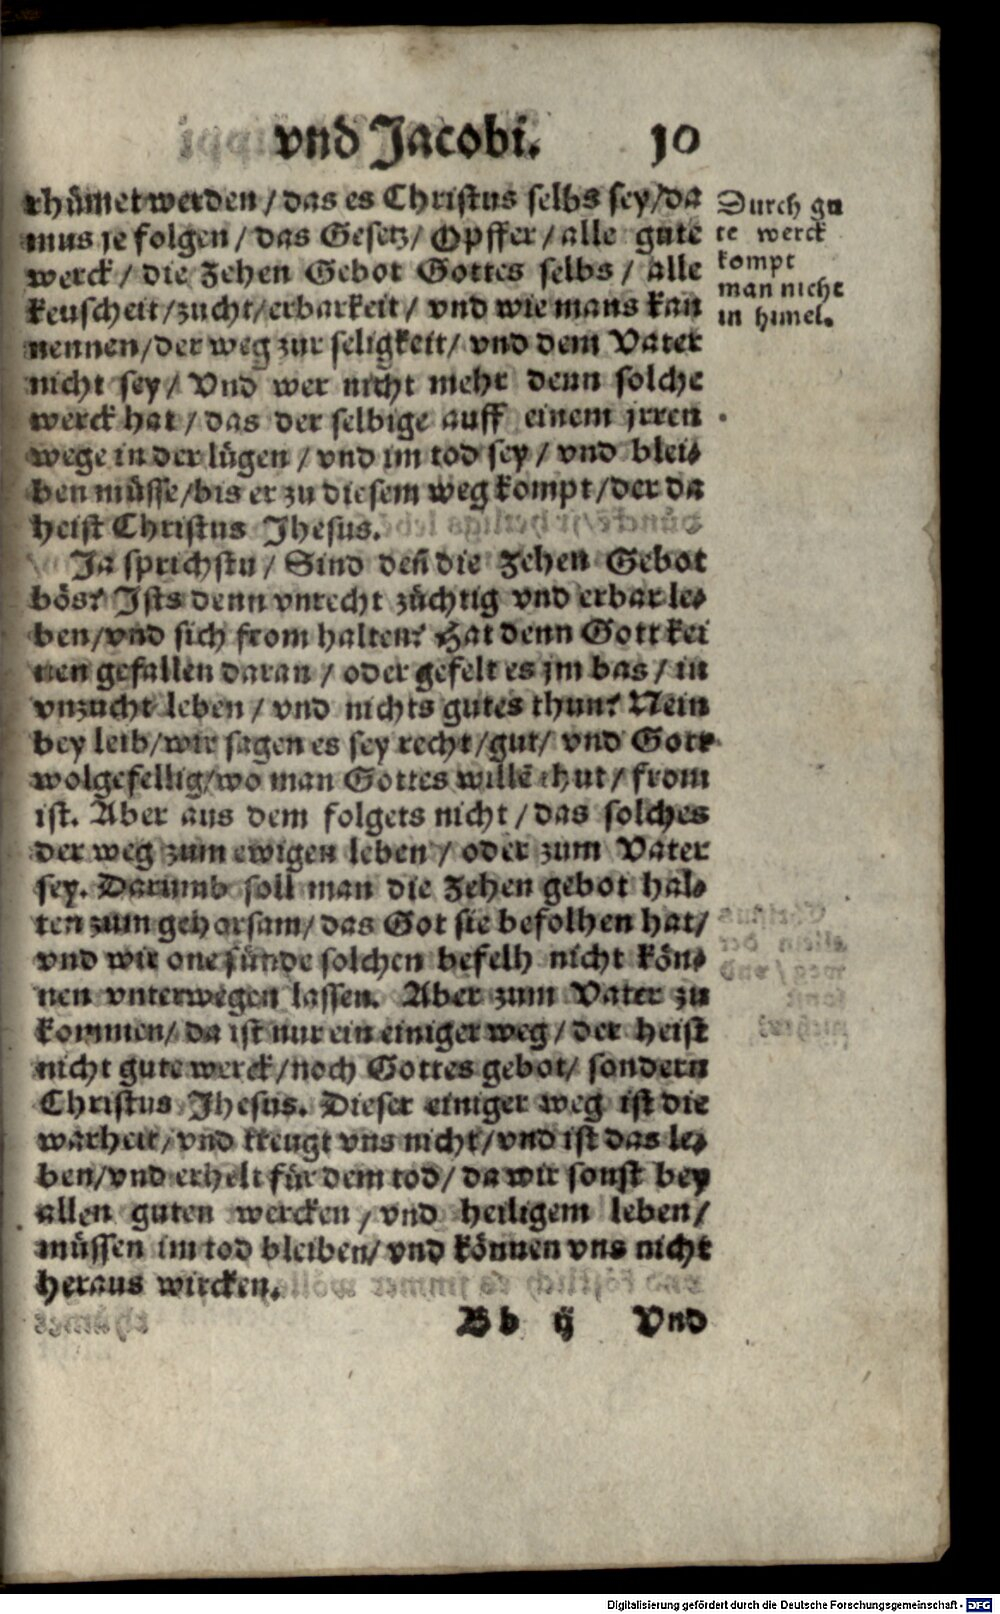 vnd Jacobi. 10
rhümet werden / das es Christus selbs sey/da
mus je folgen / das Gesetz/ Opffer / alle gute
werck / die Zehen Gebot Gottes selbs / alle
keuscheit/zucht/erbarkeit / vnd wie mans kan
nennen/der weg zur seligkeit/ vnd dem Vater
nicht sey/ Vnd wer nicht mehr denn solche
werck hat / das der selbige auff einem jrren
wege in der lügen / vnd im tod sey / vnd blei-
ben müsse/bis er zu diesem weg kompt/der da
heist Christus Jhesus.
Ja sprichstu / Sind deñ die Zehen Gebot
bös? Jsts denn vnrecht züchtig vnd erbar le-
ben/vnd sich from halten? Hat denn Gott kei
nen gefallen daran / oder gefelt es jm bas / in
vnzucht leben / vnd nichts gutes thun? Nein
bey leib/wir sagen es sey recht/gut/ vnd Gott
wolgefellig/wo man Gottes willē thut/ from
ist. Aber aus dem folgets nicht / das solches
der weg zum ewigen leben / oder zum Vater
sey. Darumb soll man die Zehen gebot hal-
ten zum gehorsam/ das Got sie befolhen hat/
vnd wir one sünde solchen befelh nicht kön-
nen vnterwegen lassen. Aber zum Vater zu
kommen/ da ist nur ein einiger weg / der heist
nicht gute werck/noch Gottes gebot/ sondern
Christus Jhesus. Dieser einiger weg ist die
warheit/vnd treugt vns nicht/vnd ist das le-
ben/vnd erhelt für dem tod/ da wir sonst bey
allen guten wercken / vnd heiligem leben/
müssen im tod bleiben/ vnd können vns nicht
heraus wircken.
Bb ij Vnd
Durch gu
te werck
kompt
man nicht
in himel.
Digitalisierung gefördert durch die Deutsche Forschungsgemeinschaft - DFG